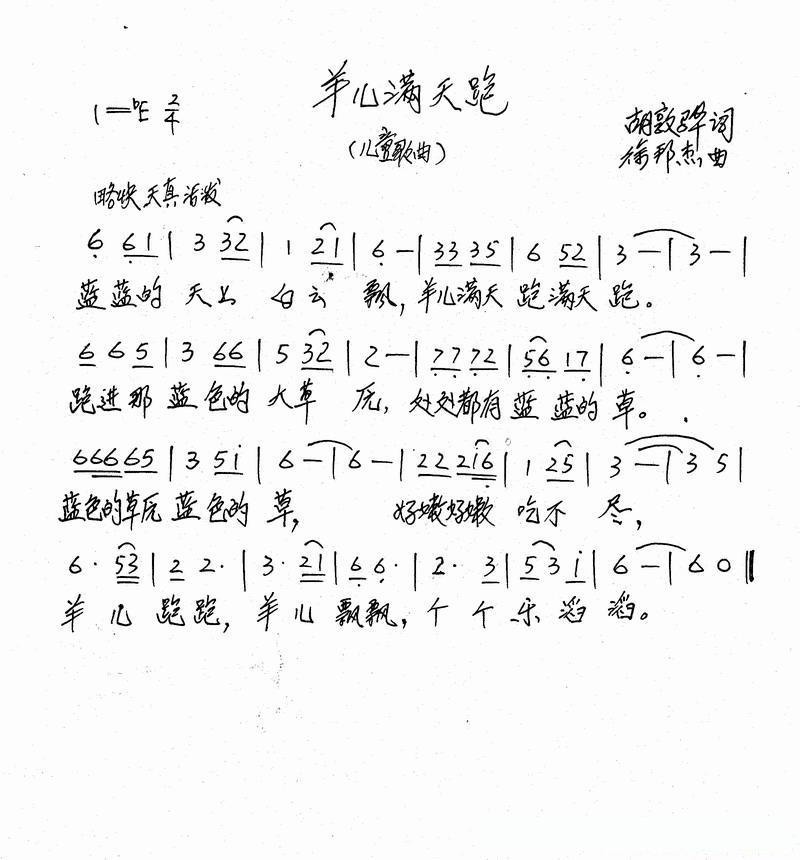 羊儿满天跑
1=♭E 2/4
(儿童歌曲)
胡敦骅词
徐邦杰曲
略快 天真活泼
6̣ 6̣1 | 3 32 | 1 21 | 6̣ — | 33 35 | 6 52 | 3 — | 3 — |
蓝蓝的 天上 白云 飘，羊儿满天 跑满天 跑。
6 6 5 | 3 66 | 5 32 | 2 — | 7̣7̣ 7̣2 | 5̣6̣ 17̣ | 6̣ — | 6̣ — |
跑进那 蓝色的 大草 原，处处都有 蓝 蓝的 草。
66665 | 3 5i | 6 — | 6 — | 22 216̣ | 1 25 | 3 — | 3 5 |
蓝色的草原 蓝色的 草， 好嫩好嫩 吃不 尽，
6· 53 | 2 2· | 3· 21 | 6̣ 6̣· | 2· 3 | 5 3 i | 6 — | 6 0 ‖
羊 儿 跑跑，羊 儿 飘飘，个 个 乐 滔 滔。